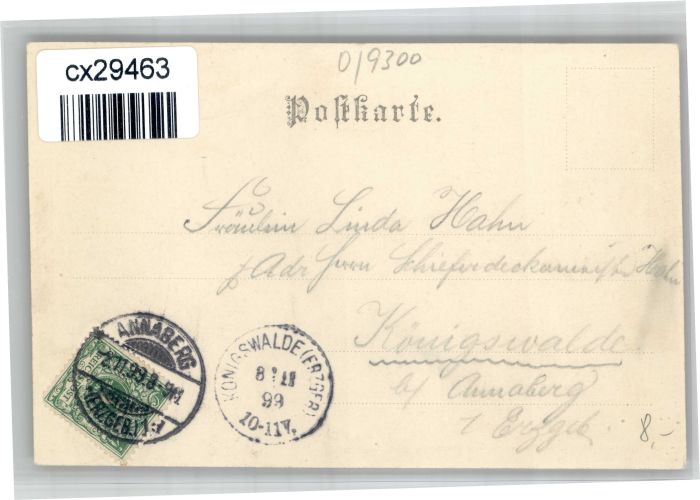 cx29463
0/9300
Postkarte.
Fräulein Linda Hahn
p Adr Herrn Schieferdeckermeister Hahn
Königswalde
b/ Annaberg
i Erzgeb.
8,-
ANNABERG
(ERZGEB.)
KÖNIGSWALDE (ERZGEB.)
8
99
10-11V.